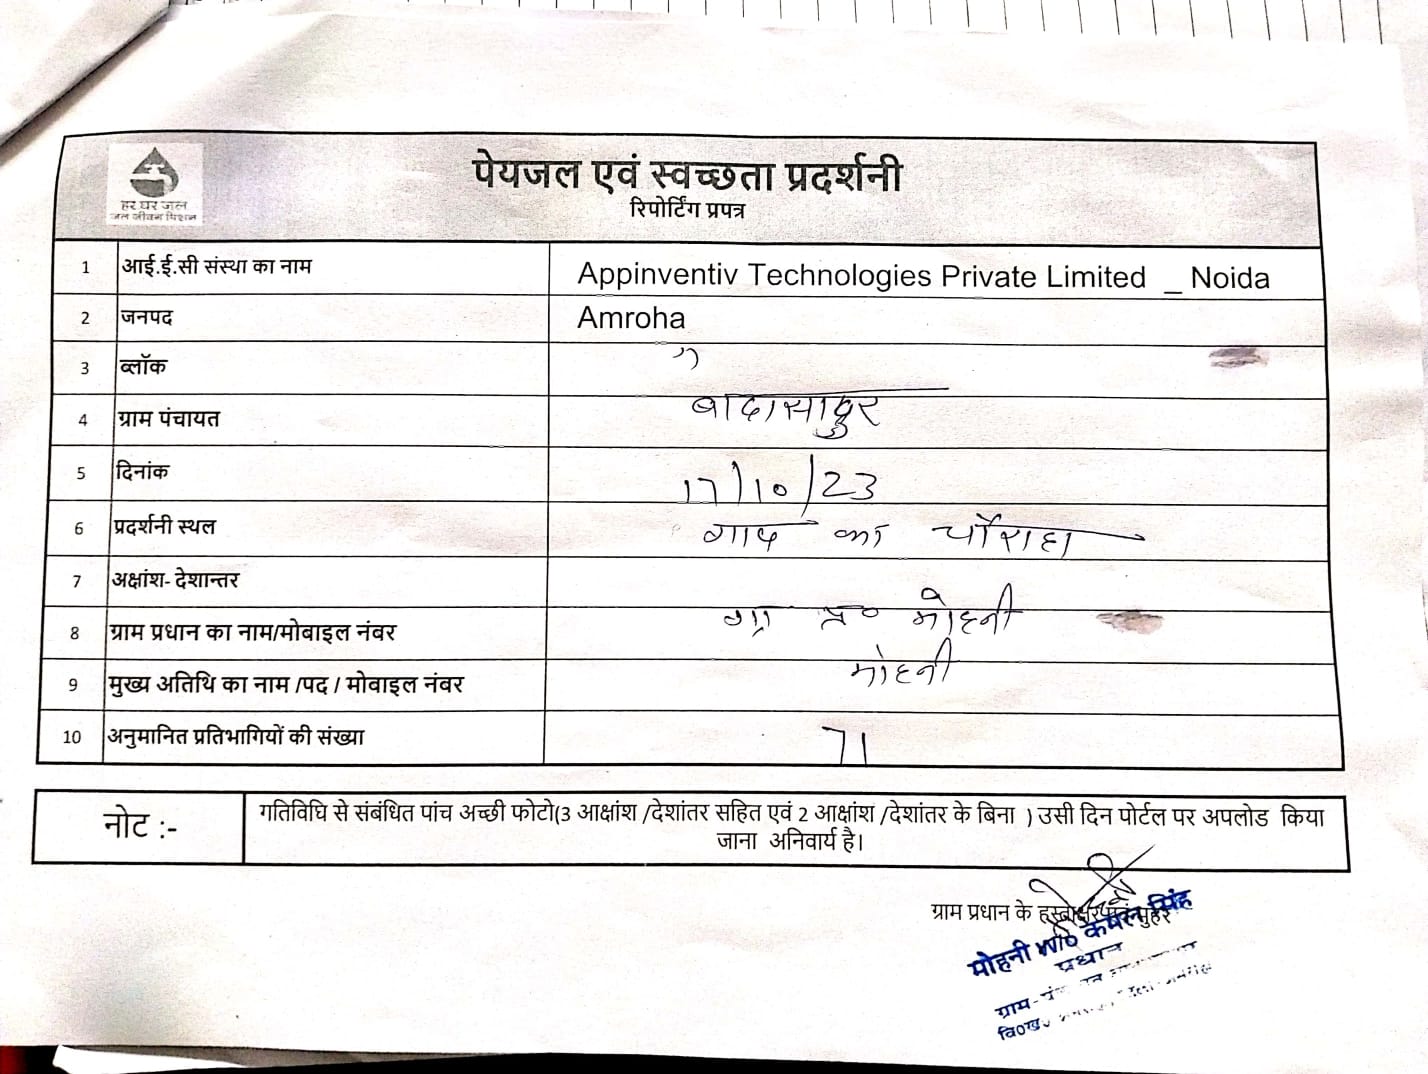 हर घर जल
जल जीवन मिशन
पेयजल एवं स्वच्छता प्रदर्शनी
रिपोर्टिंग प्रपत्र
1 आई.ई.सी संस्था का नाम Appinventiv Technologies Private Limited _ Noida
2 जनपद Amroha
3 ब्लॉक "
4 ग्राम पंचायत
5 दिनांक 17/10/23
6 प्रदर्शनी स्थल का चौराहा
7 अक्षांश- देशान्तर
8 ग्राम प्रधान का नाम/मोबाइल नंबर ग्रा प्र० मोहनी
9 मुख्य अतिथि का नाम /पद / मोबाइल नंबर मोहनी
10 अनुमानित प्रतिभागियों की संख्या 71
नोट :- गतिविधि से संबंधित पांच अच्छी फोटो(3 आक्षांश /देशांतर सहित एवं 2 आक्षांश /देशांतर के बिना ) उसी दिन पोर्टल पर अपलोड किया
जाना अनिवार्य है।
ग्राम प्रधान के हस्ताक्षर एवं मुहर
मोहनी W/o केवल सिंह
प्रधान
ग्राम-
वि०ख०